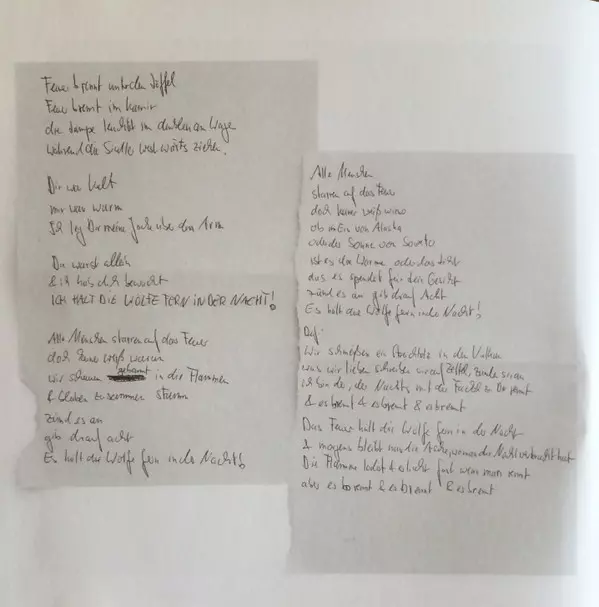 Feuer brennt unterden Töffel
Feuer brennt im Kamin
die Lampe leuchtet im dunklen am Wege
während die Siedler westwärts ziehen.
Dir war kalt
mir war warm
Ich leg Dir meine Jacke über den Arm
Du warst allein
& ich hab dich bewacht
ICH HALT DIE WÖLFE FERN IN DER NACHT!
Alle Menschen starren auf das Feuer
doch keiner weiß warum
wir schauen gebannt in die Flammen
& bleiben zusammen stumm
zünd es an
gib drauf acht
Es hält die Wölfe fern in der Nacht!
Alle Menschen
starren auf das Feuer
doch keiner weiß wieso
ob im Eis von Alaska
oder der Sonne von Soweto
ist es die Wärme oder das Licht
das es spendet für dein Gesicht
zünd es an gib drauf Acht
Es hält die Wölfe fern in der Nacht!
Wir schmeißen ein Streichholz in den Vulkan
was wir lieber schreiben sind auf Zettel, zünden sie an
ich bin der, der Nachts mit der Fackel zu Dir rennt
& es brennt & es brennt & es brennt
Das Feuer hält die Wölfe fern in der Nacht
& morgens bleibt nur die Asche, wenn man die Nacht verbracht hat
Die Flamme lodert & erlischt fast wenn man rennt
aber es brennt & es brennt & es brennt